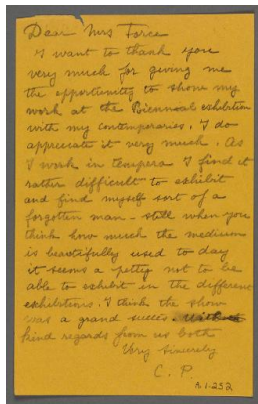 Dear Mrs Force
I want to thank you
very much for giving me
the opportunity to show my
work at the Biennial exhibition
with my contemporaries. I do
appreciate it very much. As
I work in tempera I find it
rather difficult to exhibit
and find myself sort of a
forgotten man - still when you
think how much the medium
is beautifully used to day
it seems a pitty not to be
able to exhibit in the different
exhibitions. I think the show
was a grand success.
kind regards from us both
Very Sincerely
C. P.